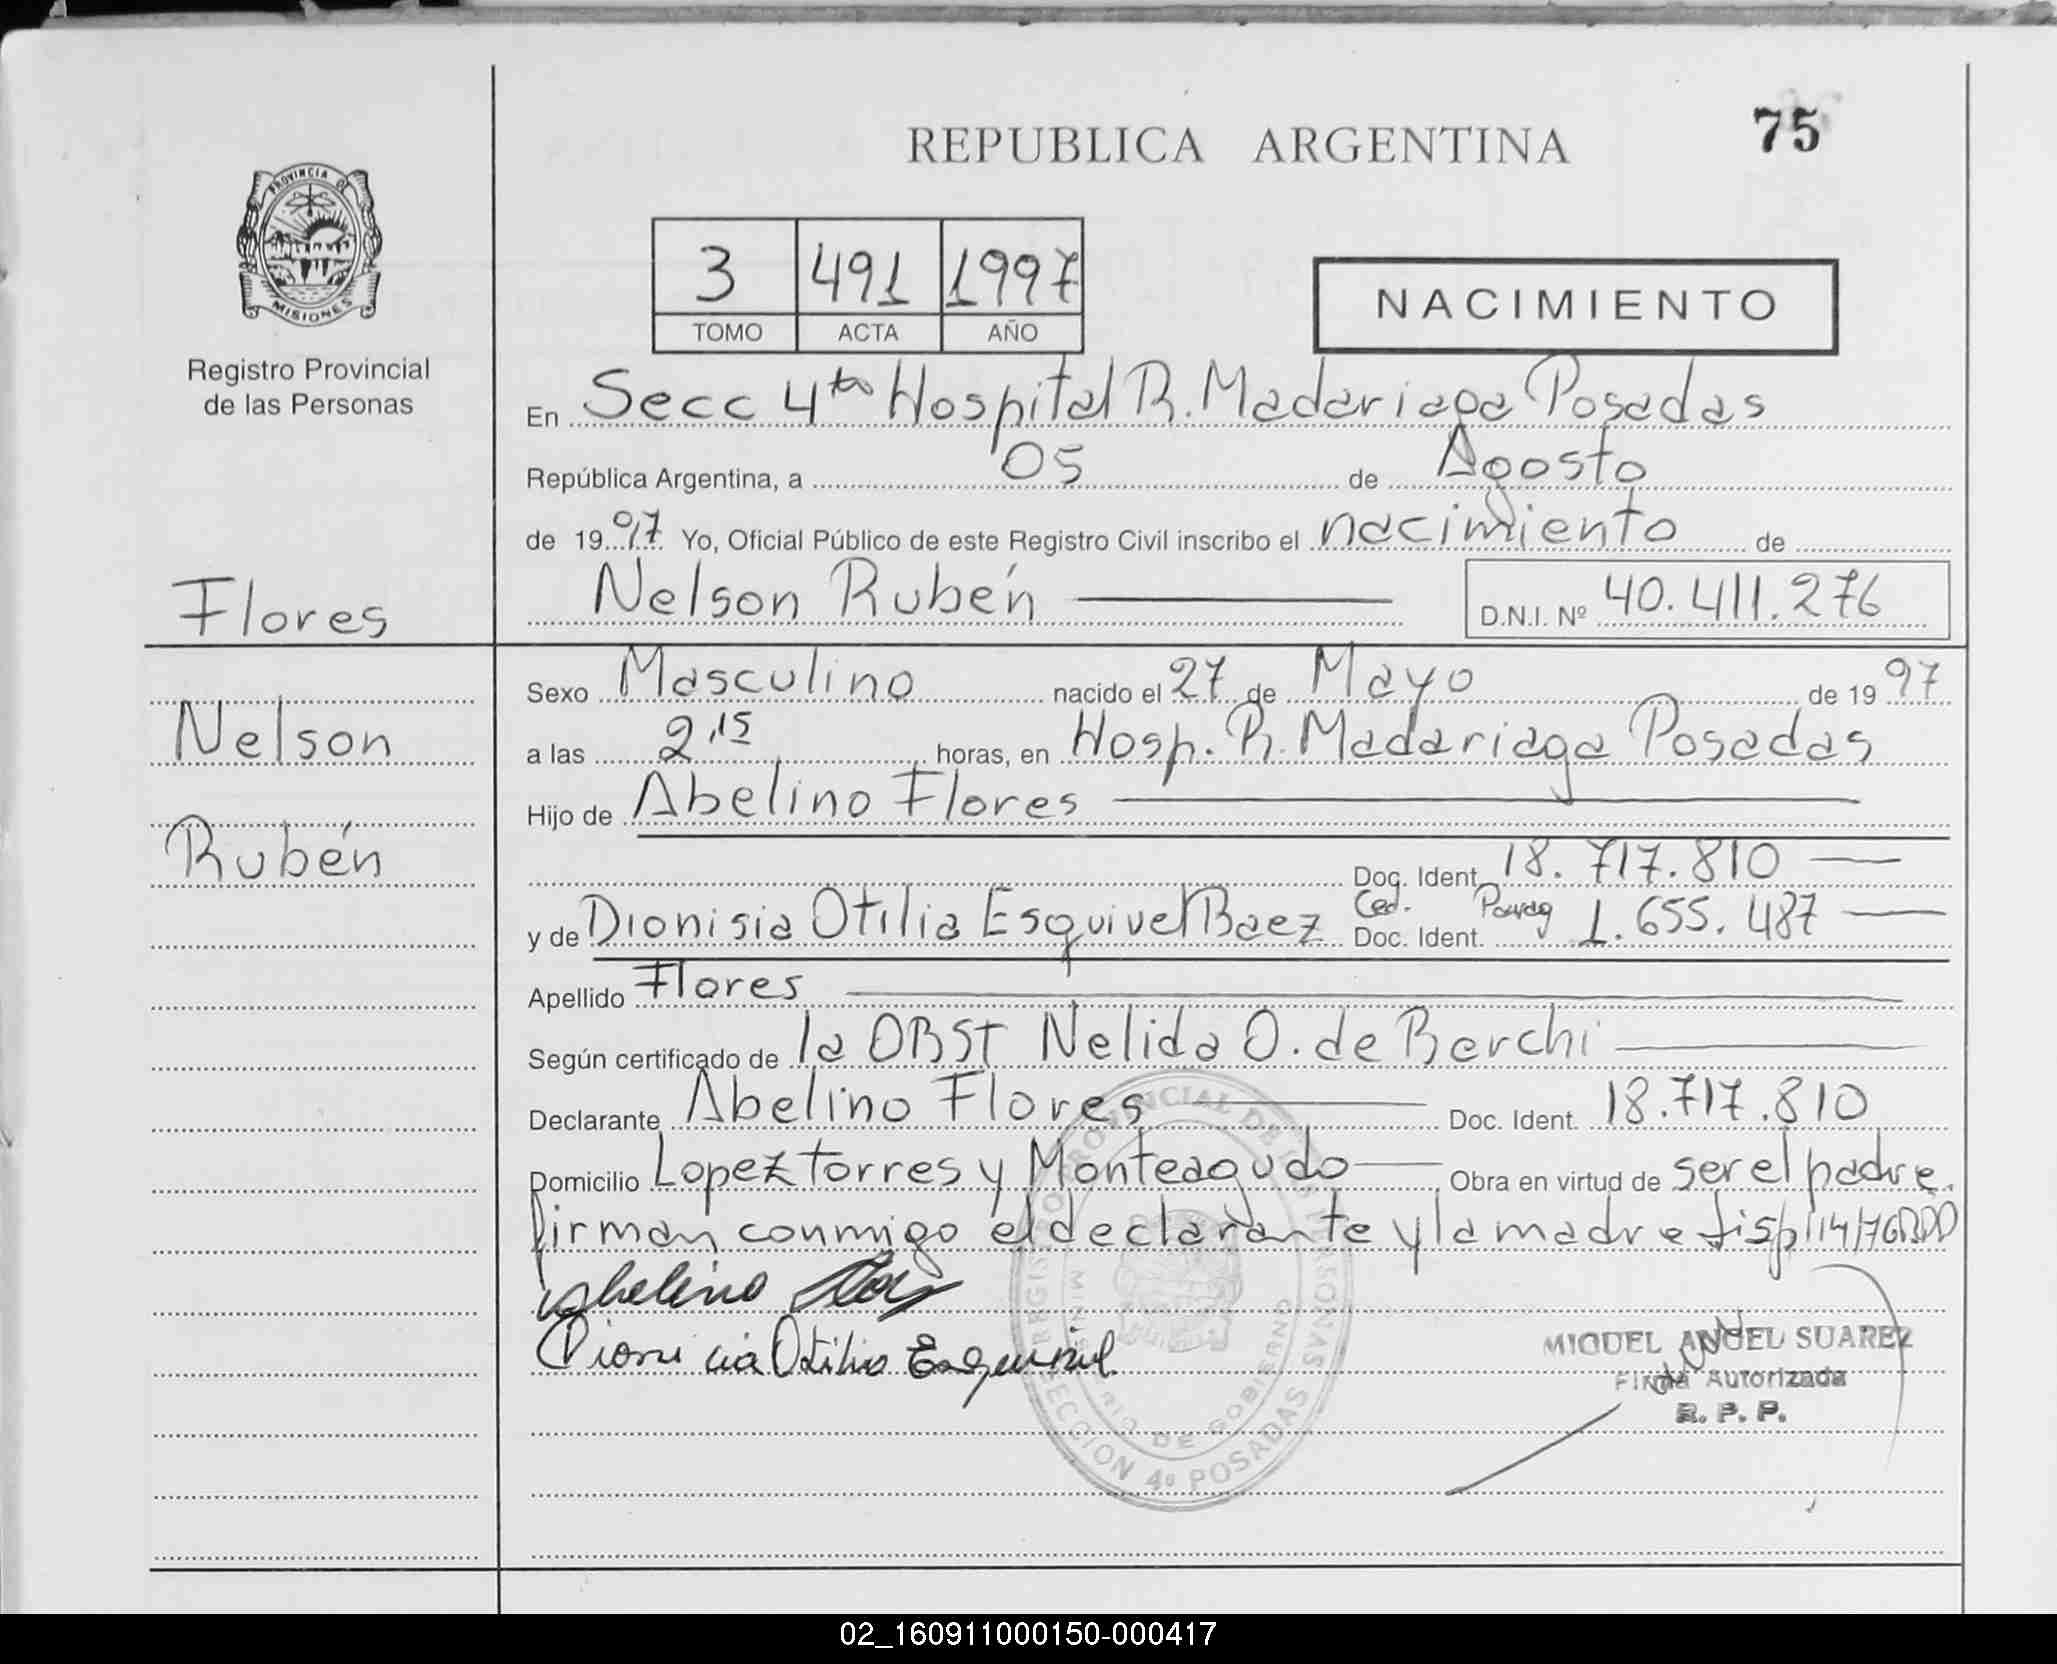 75
REPUBLICA ARGENTINA
PROVINCIA DE
MISIONES
Registro Provincial
de las Personas
3 491 1997
TOMO ACTA AÑO
NACIMIENTO
En Secc 4ta Hospital R. Madariaga Posadas
República Argentina, a 05 de Agosto
de 1997 Yo, Oficial Público de este Registro Civil inscribo el nacimiento de
Nelson Rubén D.N.I. Nº 40.411.276
Flores
Nelson
Rubén
Sexo Masculino nacido el 27 de Mayo de 1997
a las 2,15 horas, en Hosp. R. Madariaga Posadas
Hijo de Abelino Flores
Doc. Ident. 18.717.810
y de Dionisia Otilia Esquivel Baez Ced. Parag Doc. Ident. 1.655.487
Apellido Flores
Según certificado de la OBST Nelida O. de Berchi
Declarante Abelino Flores Doc. Ident. 18.717.810
Domicilio Lopez torres y Monteagudo Obra en virtud de ser el padre.
firman conmigo el declarante y la madre disp 114/76
Abelino Flores
Dionicia Otilia Esquivel
REGISTRO PROVINCIAL DE LAS PERSONAS
MINISTERIO DE GOBIERNO
SECCION 4º POSADAS
MIGUEL ANGEL SUAREZ
Firma Autorizada
R. P. P.
02_160911000150-000417